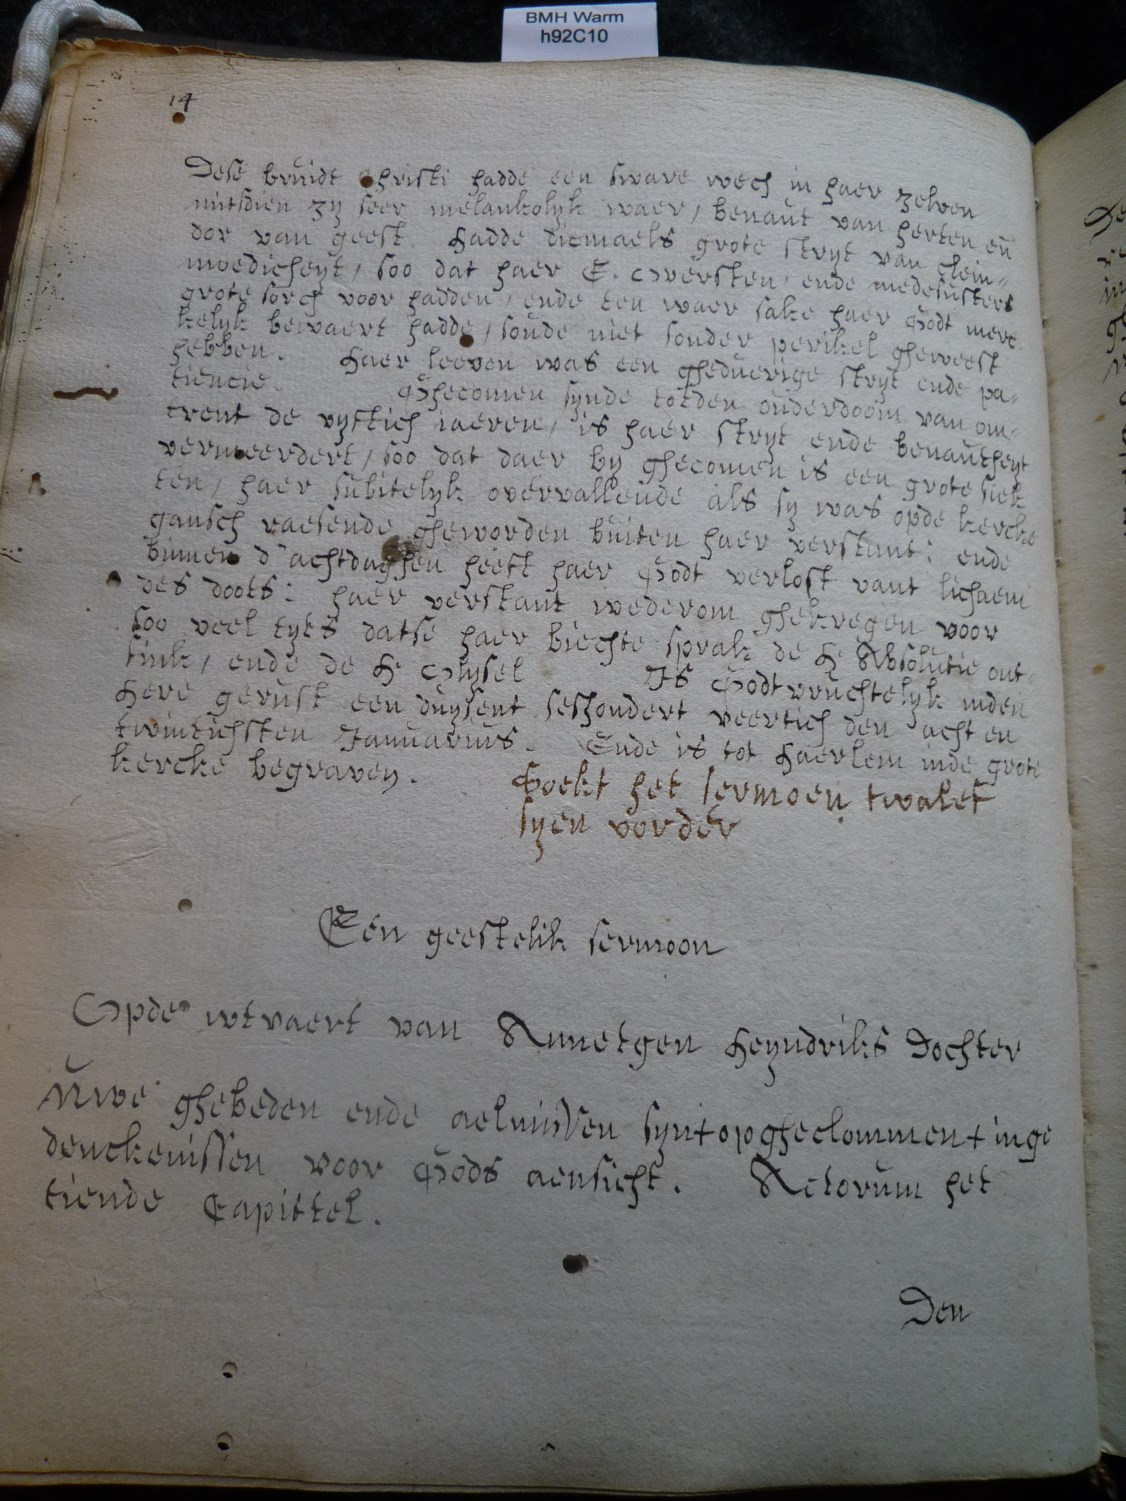 BMH Warm
h92C10
14
Dese bruidt Christi hadde een sware wech in haer zelven
mitsdien zy seer melankolyk waer, benaut van herten en
dor van geest. Hadde dicmaels grote stryt van clein-
moedicheyt, soo dat haer E. Oversten, ende medesusters
grote sorch voor hadden, ende ten waer sake haer Godt merc-
kelyk bewaert hadde, soude niet sonder perikel gheweest
hebben. Haer leeven was een gheduerige stryt ende pa-
tiencie. Ghecomen synde totden ouderdoom van om-
trent de vyftich iaeren, is haer stryt ende benautheyt
vermeerdert, soo dat daer by ghecomen is een grote siek
ten, haer subitelyk overvallende als sy was opde kercke
gansch raesende gheworden buiten haer verstant: ende
binnen d'achtdaghen heeft haer Godt verlost vant lichaem
des doots: haer verstant wederom ghekregen voor
soo veel tyts datse haer biechte sprak de H Absolutie ont-
fink, ende de H Olysel Is Godtvruchtelyk inden
Here gerust een duysent seshondert veertich den acht en
twintichsten Januarius. Ende is tot Haerlem inde grote
kercke begraven.
Soekt het sermoen twalef
syen vorder
Een geestelik sermoon
Opde wtvaert van Annetgen Heyndriks Dochter
Uwe ghebeden ende aelmissen synt opgheclommen t inge
denckenissen voor Gods aensicht. Actorum het
tiende Capittel.
Den